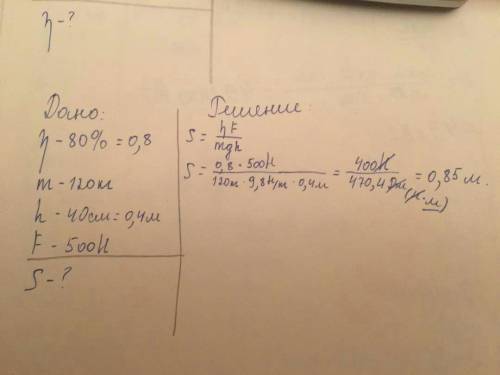 η - ?
Дано:
η - 80% = 0,8
m - 120кг
h - 40см = 0,4м
F - 500Н
S - ?
Решение:
S = hF / mgh
S = 0,8 · 500Н / 120кг · 9,8Н/кг · 0,4м = 400Н / 470,4 Дж (Н·м) = 0,85 м.